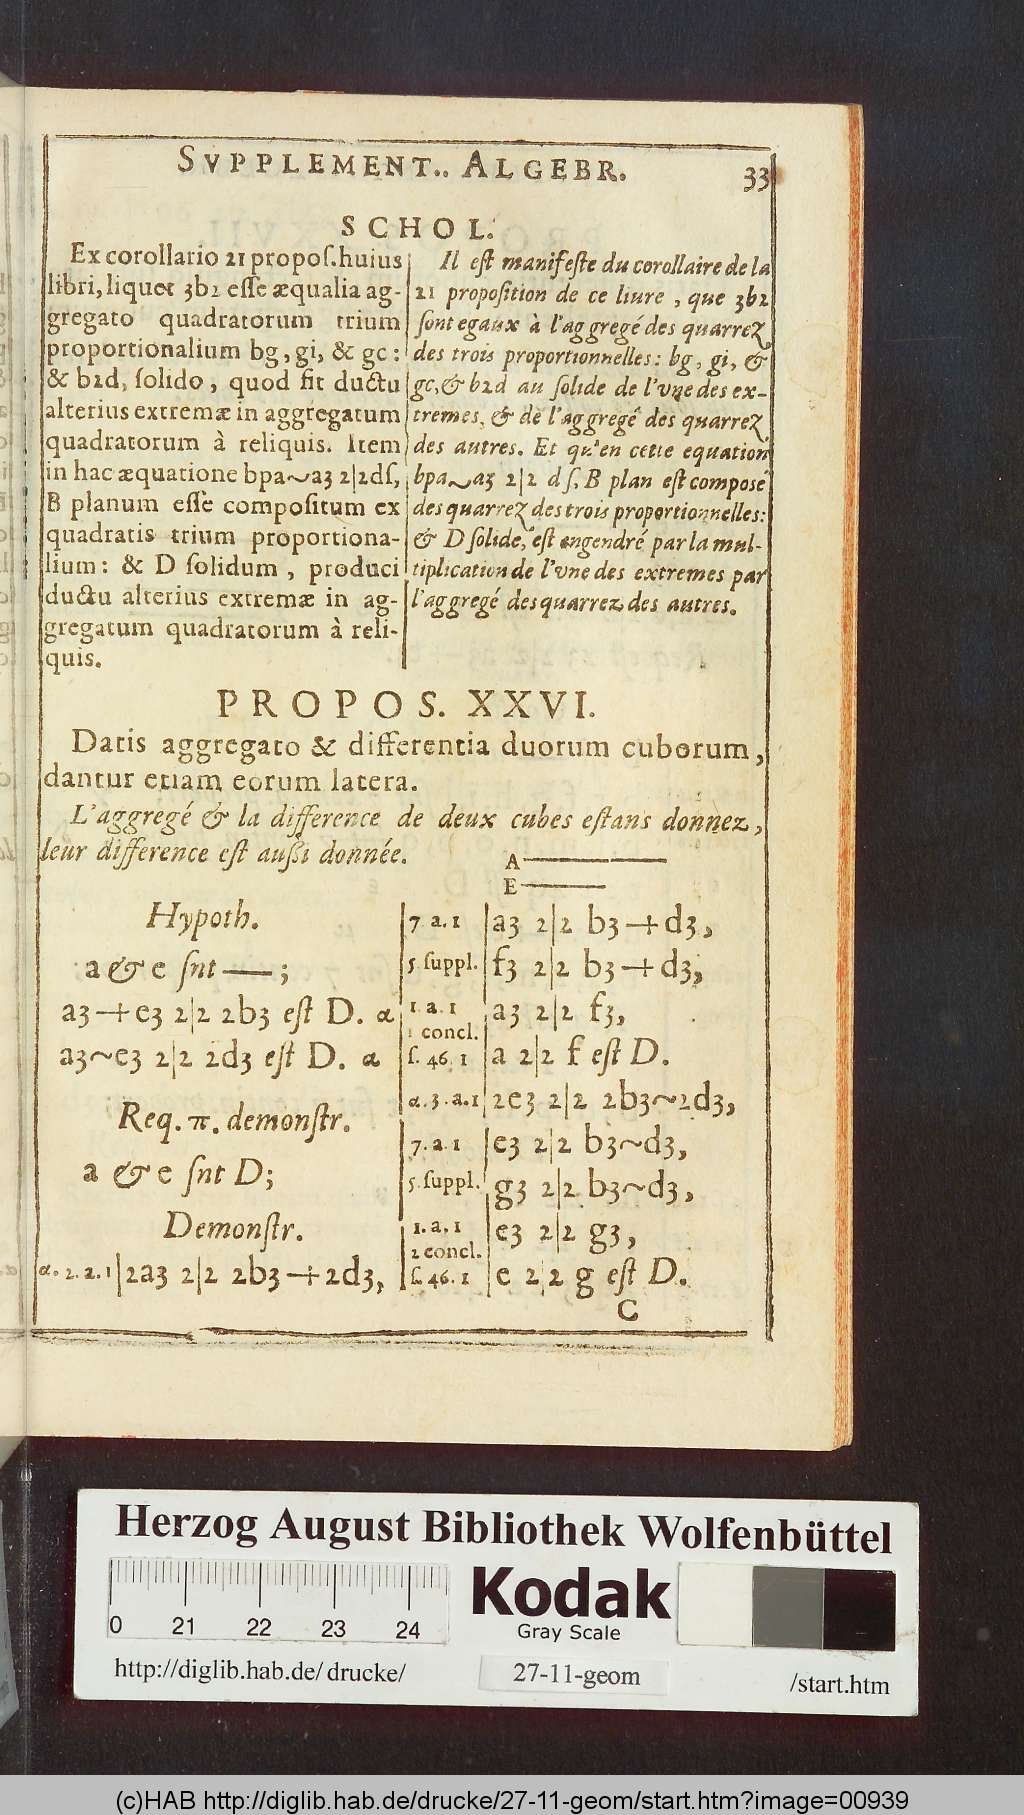 SVPPLEMENT.. ALGEBR. 33
SCHOL.
Ex corollario 21 propoſ. huius
libri, liquet 3b2 eſſe æqualia ag-
gregato quadratorum trium
proportionalium bg, gi, & gc:
& b2d, ſolido, quod fit ductu
alterius extremæ in aggregatum
quadratorum à reliquis. Item
in hac æquatione bpa~a3 2|2dſ,
B planum eſſe compoſitum ex
quadratis trium proportiona-
lium: & D ſolidum, produci
ductu alterius extremæ in ag-
gregatum quadratorum à reli-
quis.
Il eſt manifeſte du corollaire de la
21 propoſition de ce liure, que 3b2
ſont egaux à l'aggregé des quarrez
des trois proportionnelles: bg, gi, &
gc, & b2d au ſolide de l'vne des ex-
tremes, & de l'aggregé des quarrez
des autres. Et qu'en cette equation
bpa~a3 2|2 dſ, B plan eſt composé
des quarrez des trois proportionnelles:
& D ſolide, eſt engendré par la mul-
tiplication de l'vne des extremes par
l'aggregé des quarrez des autres.
PROPOS. XXVI.
Datis aggregato & differentia duorum cuborum,
dantur etiam eorum latera.
L'aggregé & la difference de deux cubes eſtans donnez,
leur difference eſt außi donnée.
A
E
Hypoth.
a & e ſnt —;
a3+e3 2|2 2b3 eſt D. α
a3~e3 2|2 2d3 eſt D. α
Req. π. demonſtr.
a & e ſnt D;
Demonſtr.
α. 2. 2. 1 | 2a3 2|2 2b3+2d3,
7. a. 1 | a3 2|2 b3+d3,
5. ſuppl. | f3 2|2 b3+d3,
1. a. 1 | a3 2|2 f3,
1 concl.
ſ. 46. 1 | a 2|2 f eſt D.
α. 3. a. 1 | 2e3 2|2 2b3~2d3,
7. a. 1 | e3 2|2 b3~d3,
5. ſuppl. | g3 2|2 b3~d3,
1. a. 1 | e3 2|2 g3,
2 concl.
ſ. 46. 1 | e 2|2 g eſt D.
C
Herzog August Bibliothek Wolfenbüttel
0 21 22 23 24
Kodak
Gray Scale
http://diglib.hab.de/drucke/ 27-11-geom /start.htm
(c)HAB http://diglib.hab.de/drucke/27-11-geom/start.htm?image=00939